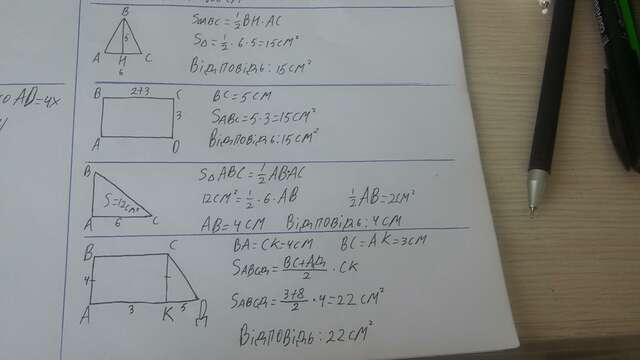 B
5
A H C
6
S△ABC = 1/2 BH · AC
S△ = 1/2 · 6 · 5 = 15см²
Відповідь: 15см²
о AD = 4x
B 2+3 C
3
A D
BC = 5см
SABC = 5 · 3 = 15см²
Відповідь: 15см²
B
S=12см²
A 6 C
S△ABC = 1/2 AB·AC
12см² = 1/2 · 6 · AB 1/2 AB = 2см²
AB = 4см Відповідь: 4см
B C
4
A 3 K 5 Д
BA = CK = 4см BC = AK = 3см
SABCД = BC+AД/2 · CK
SABCД = 3+8/2 · 4 = 22см²
Відповідь: 22см²